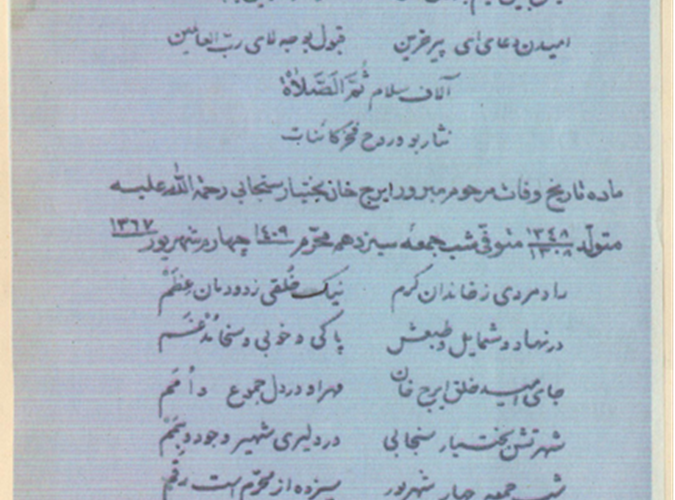 امیدن دعای ای پیر حزین قبول بو جه لای رب العالمین
آلاف سلام ثُمَّ الصَّلاٰة
نثار بو و روح فخر کائنات
ماده تاریخ وفات مرحوم مبرور ایرج خان بختیار سنجابی رحمة الله علیه
متولّد ۱۳۴۸ ۱۳۰۸ متوفّی شب جمعه سیزدهم محرّم ۱۴۰۹ چهارم شهریور ۱۳۶۷
رادمردی ز خاندان کرم نیک خُلقی ز دودمان عِظَم
در نهاد و شمایل و طبعش پاکی و خوبی و سخا مُدْغَم
جای امید خلق ایرج خان مهر او در دل جموع و اُمَم
شهرتش بختیار سنجابی در دلیری شهیر وجود و
شب جمعه چهار شهریور سیزده از محرّم است رقم